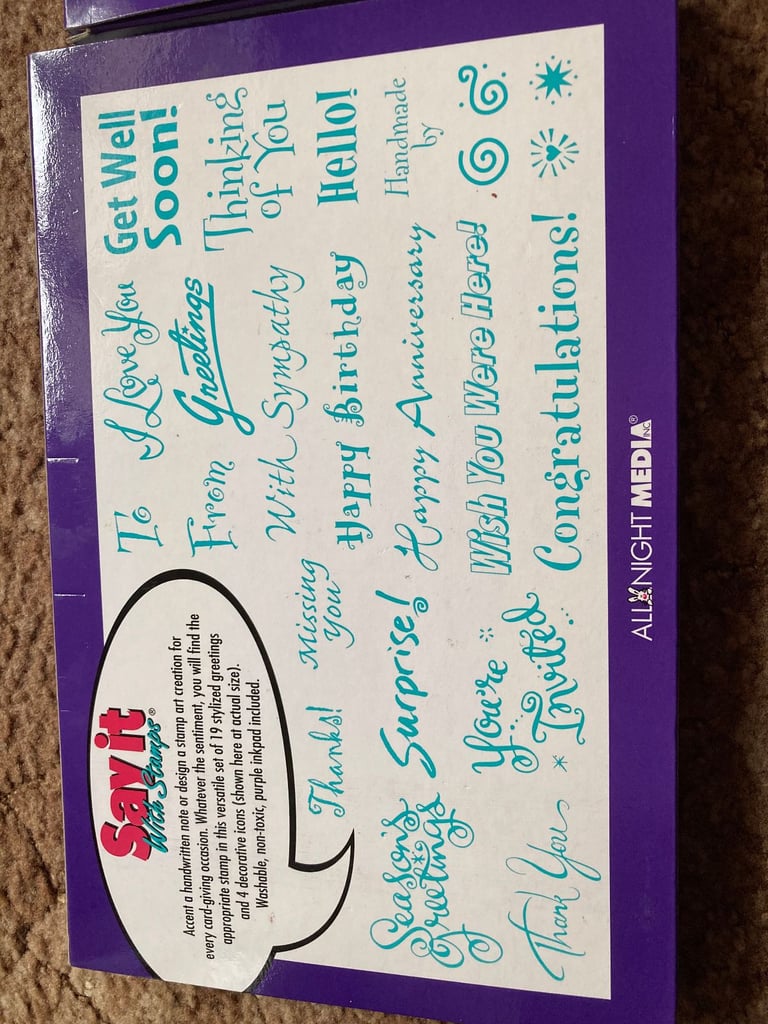 Say it
With Stamps®
Accent a handwritten note or design a stamp art creation for
every card-giving occasion. Whatever the sentiment, you will find the
appropriate stamp in this versatile set of 19 stylized greetings
and 4 decorative icons (shown here at actual size).
Washable, non-toxic, purple inkpad included.
To
I Love You
Get Well
Soon!
From
Greetings
Thinking
of You
Thanks!
Missing
You
With Sympathy
Happy Birthday
Hello!
Season's
Greetings
Surprise!
Happy Anniversary
Handmade
by
Thank You
You're
Invited
Wish You Were Here!
Congratulations!
ALL NIGHT MEDIA® INC